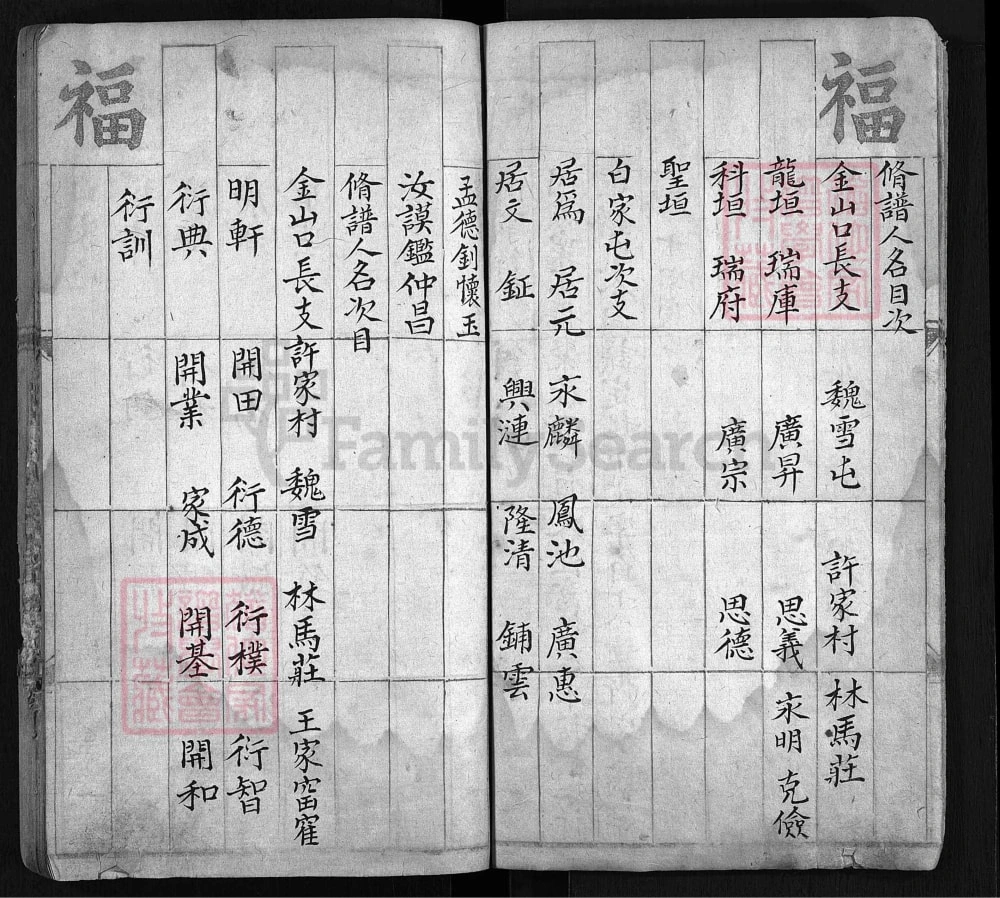 福
脩譜人名目次
金山口長支 魏雪屯 許家村 林馬莊
龍垣 瑞庫 廣昇 思義 永明 克儉
科垣 瑞府 廣宗 思德
聖垣
白家屯次支
居爲 居元 永麟 鳳池 廣惠
居文 鉦 興漣 隆清 鋪雲
孟德釗懷玉
汝謨鑑仲昌
脩譜人名次目
金山口長支 許家村 魏雪 林馬莊 王家窑窪
明軒 開田 衍德 衍樸 衍智
衍典 開業 家成 開基 開和
衍訓
福
FamilySearch